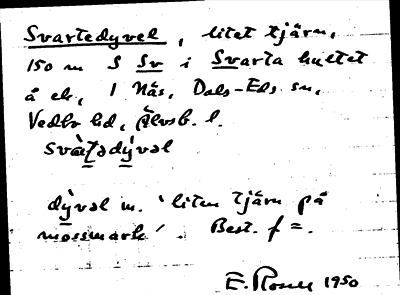 Svartedyvel, litet tjärn,
150 m S Sv i Svarta hultet
å ek, 1 Näs, Dals-Eds sn,
Vedbo hd, Älvsb. l.
dývəl m. 'liten tjärn på
mossmark'. Best. f =.
E. 1950